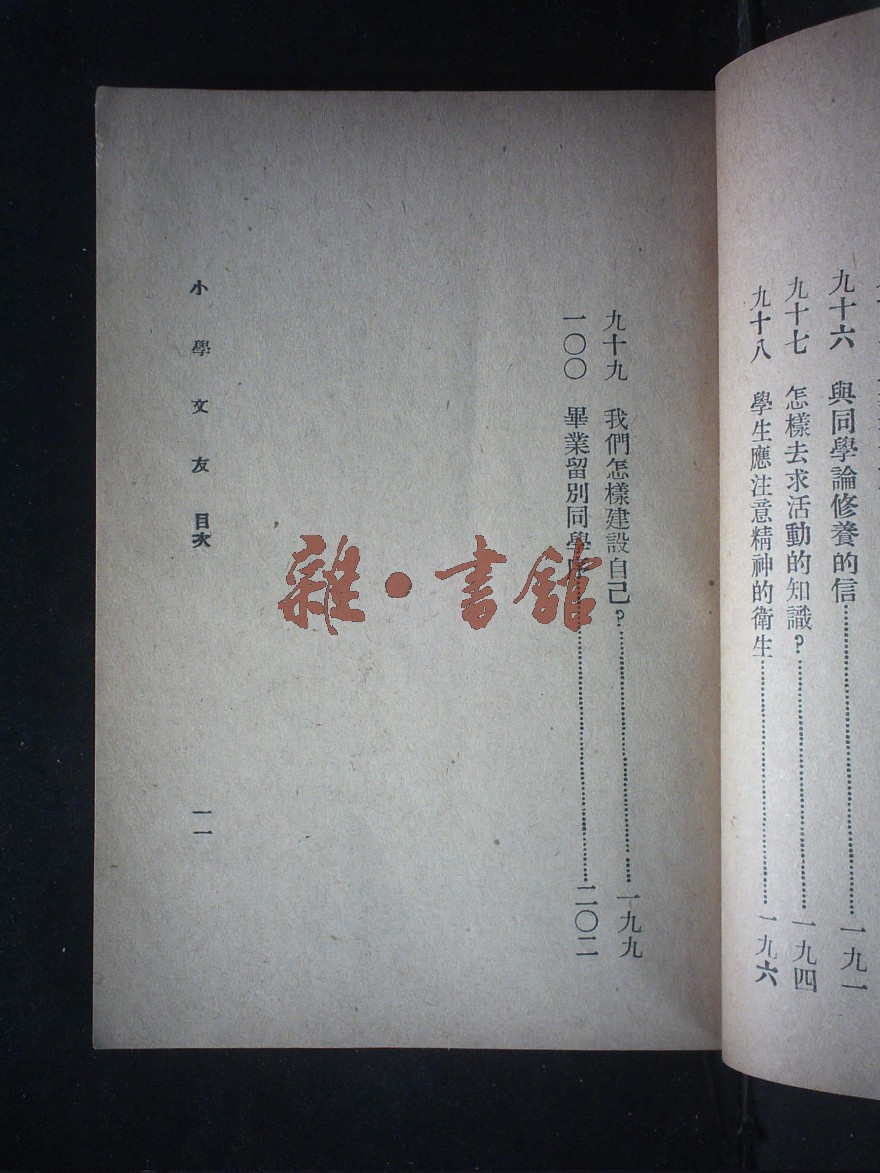 九十六 與同學論修養的信……一九一
九十七 怎樣去求活動的知識？……一九四
九十八 學生應注意精神的衛生……一九六
九十九 我們怎樣建設自己？……一九九
一〇〇 畢業留別同學……二〇二
小學文友 目次
一一
雜·書館